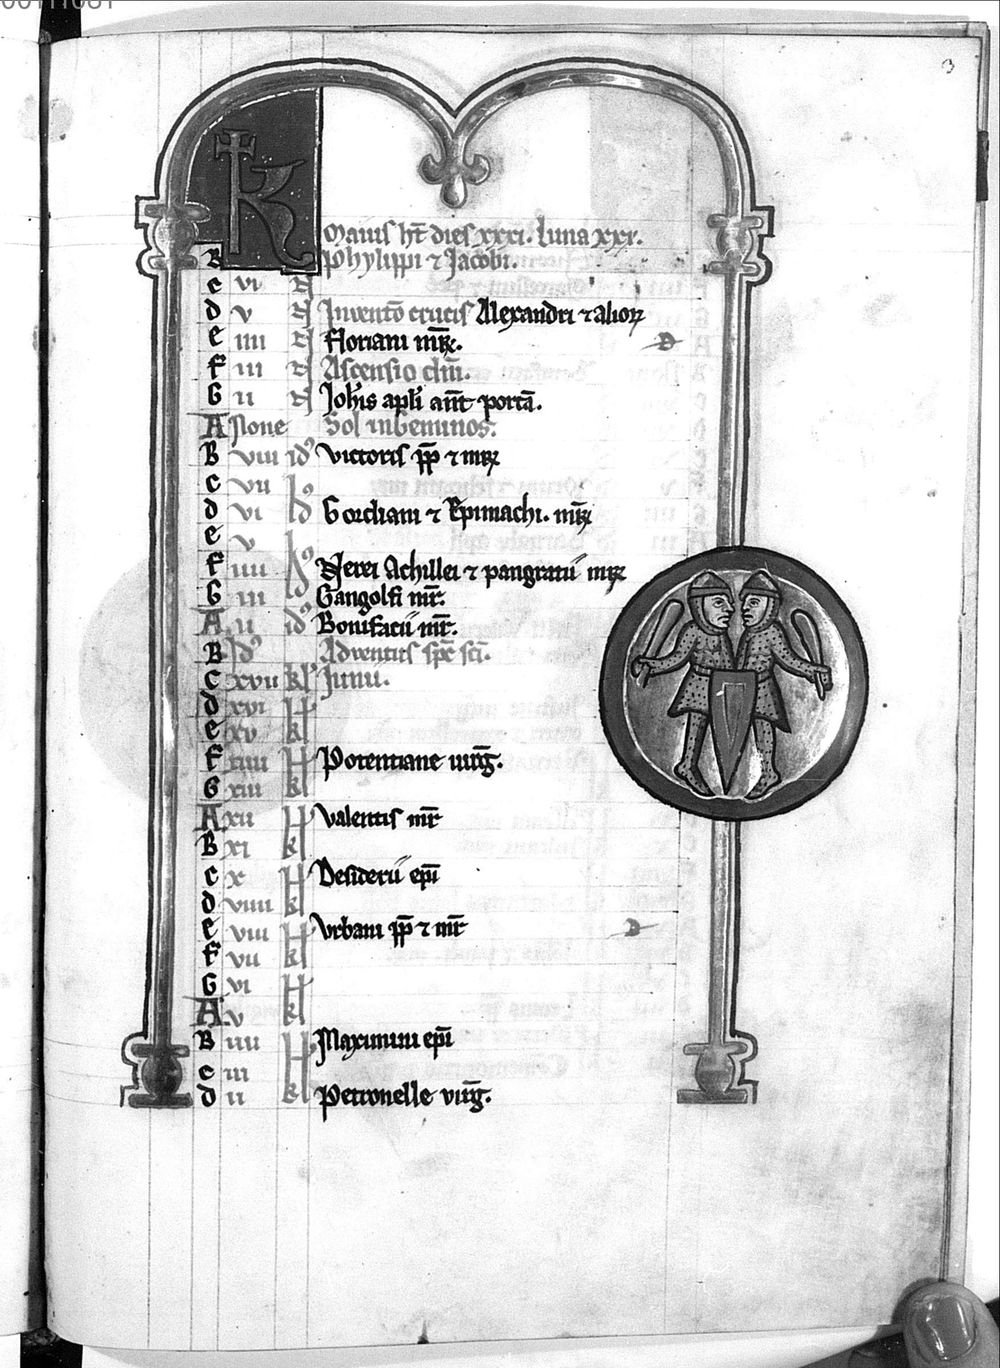 3
K
Maius ht̄ dies xxxi. luna xxx.
B Phylippi ⁊ Jacobi.
c vi
d v Inventō crucis Alexandri ⁊ alioꝝ
e iiii Floriani mr̄. D
f iii Ascensio dn̄i.
G ii Johis apl̄i an̄t portā.
A None Sol in Geminos.
B viii id⁹ Victoris pp̄ ⁊ mr̄
c vii
d vi id⁹ Gordiani ⁊ Epimachi. mr̄
e v
f iiii id⁹ Nerei Achillei ⁊ pangratii mr̄
G iii Gangolfi mr̄.
A ii id⁹ Bonifacii mr̄.
B id⁹ Adventus sp̄c sc̄i.
c xvii kl' Junii.
d xvi
e xv kl
f xiiii Potentiane virḡ.
G xiii kl
A xii Valentis mr̄
B xi kl
c x Desiderii epī
d viiii kl
e viii Urbani pp̄ ⁊ mr̄ D
f vii kl
G vi
A v kl
B iiii Maximini epī
c iii
d ii kl Petronelle virḡ.